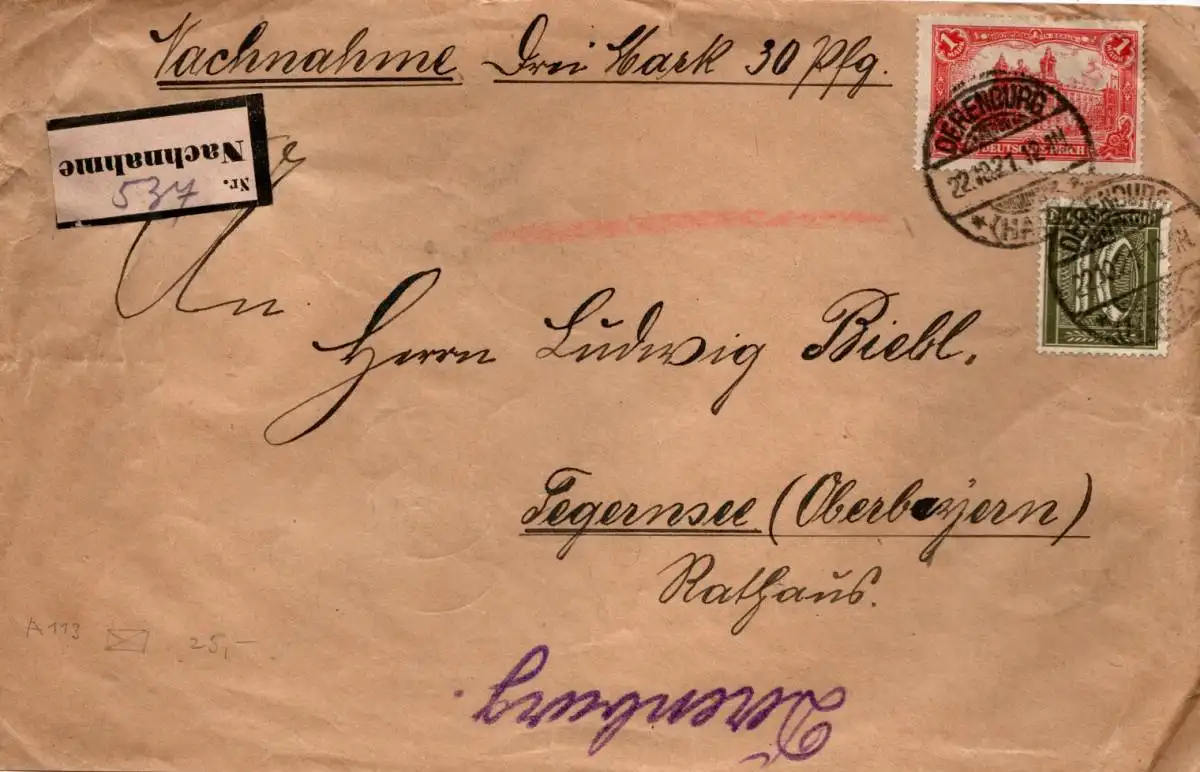 Nachnahme Drei Mark 30 Pfg.
1 MARK 1 MARK
DEUTSCHES REICH
DERENBURG
22.10.21. 12-1N
* (HA
DERENBURG
Nr.
Nachnahme
537
An
Herrn Ludwig Biebl.
Tegernsee (Oberbayern)
Rathaus.
A 113 25,-
Derenburg.